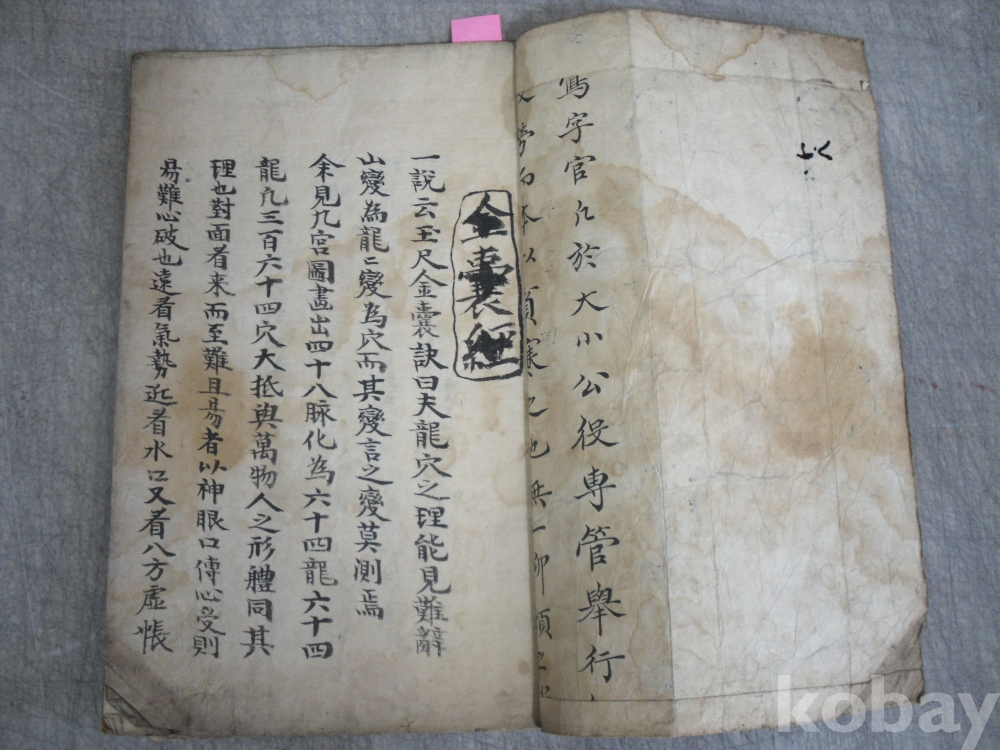 上
寫字官凡於大小公役專管舉行
金囊經
一說云玉尺金囊訣曰夫龍穴之理能見難辭
山變為龍〻變為穴而其變言之變莫測焉
余見九宮圖畫出四十八脉化為六十四龍六十四
龍凡三百六十四穴大抵與萬物人之形軆同其
理也對面看来而至難且易者以神眼口傳心受則
易難心破也遠看氣勢近看水口又看八方虛帳
kobay